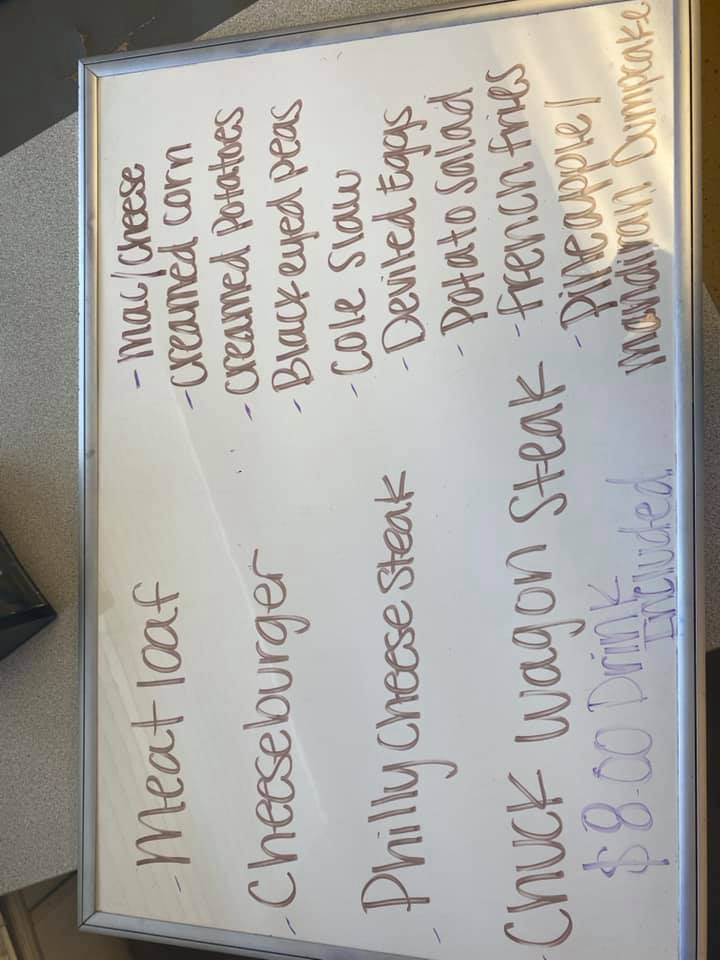 - Meat loaf
- Cheeseburger
- Philly Cheese Steak
- Chuck Wagon Steak
$8.00 Drink
Included
- Mac/Cheese
- Creamed corn
- Creamed potatoes
- Black eyed peas
- Cole Slaw
- Deviled Eggs
- Potato Salad
- French fries
- Pineapple/
Mandiran Dumpcake